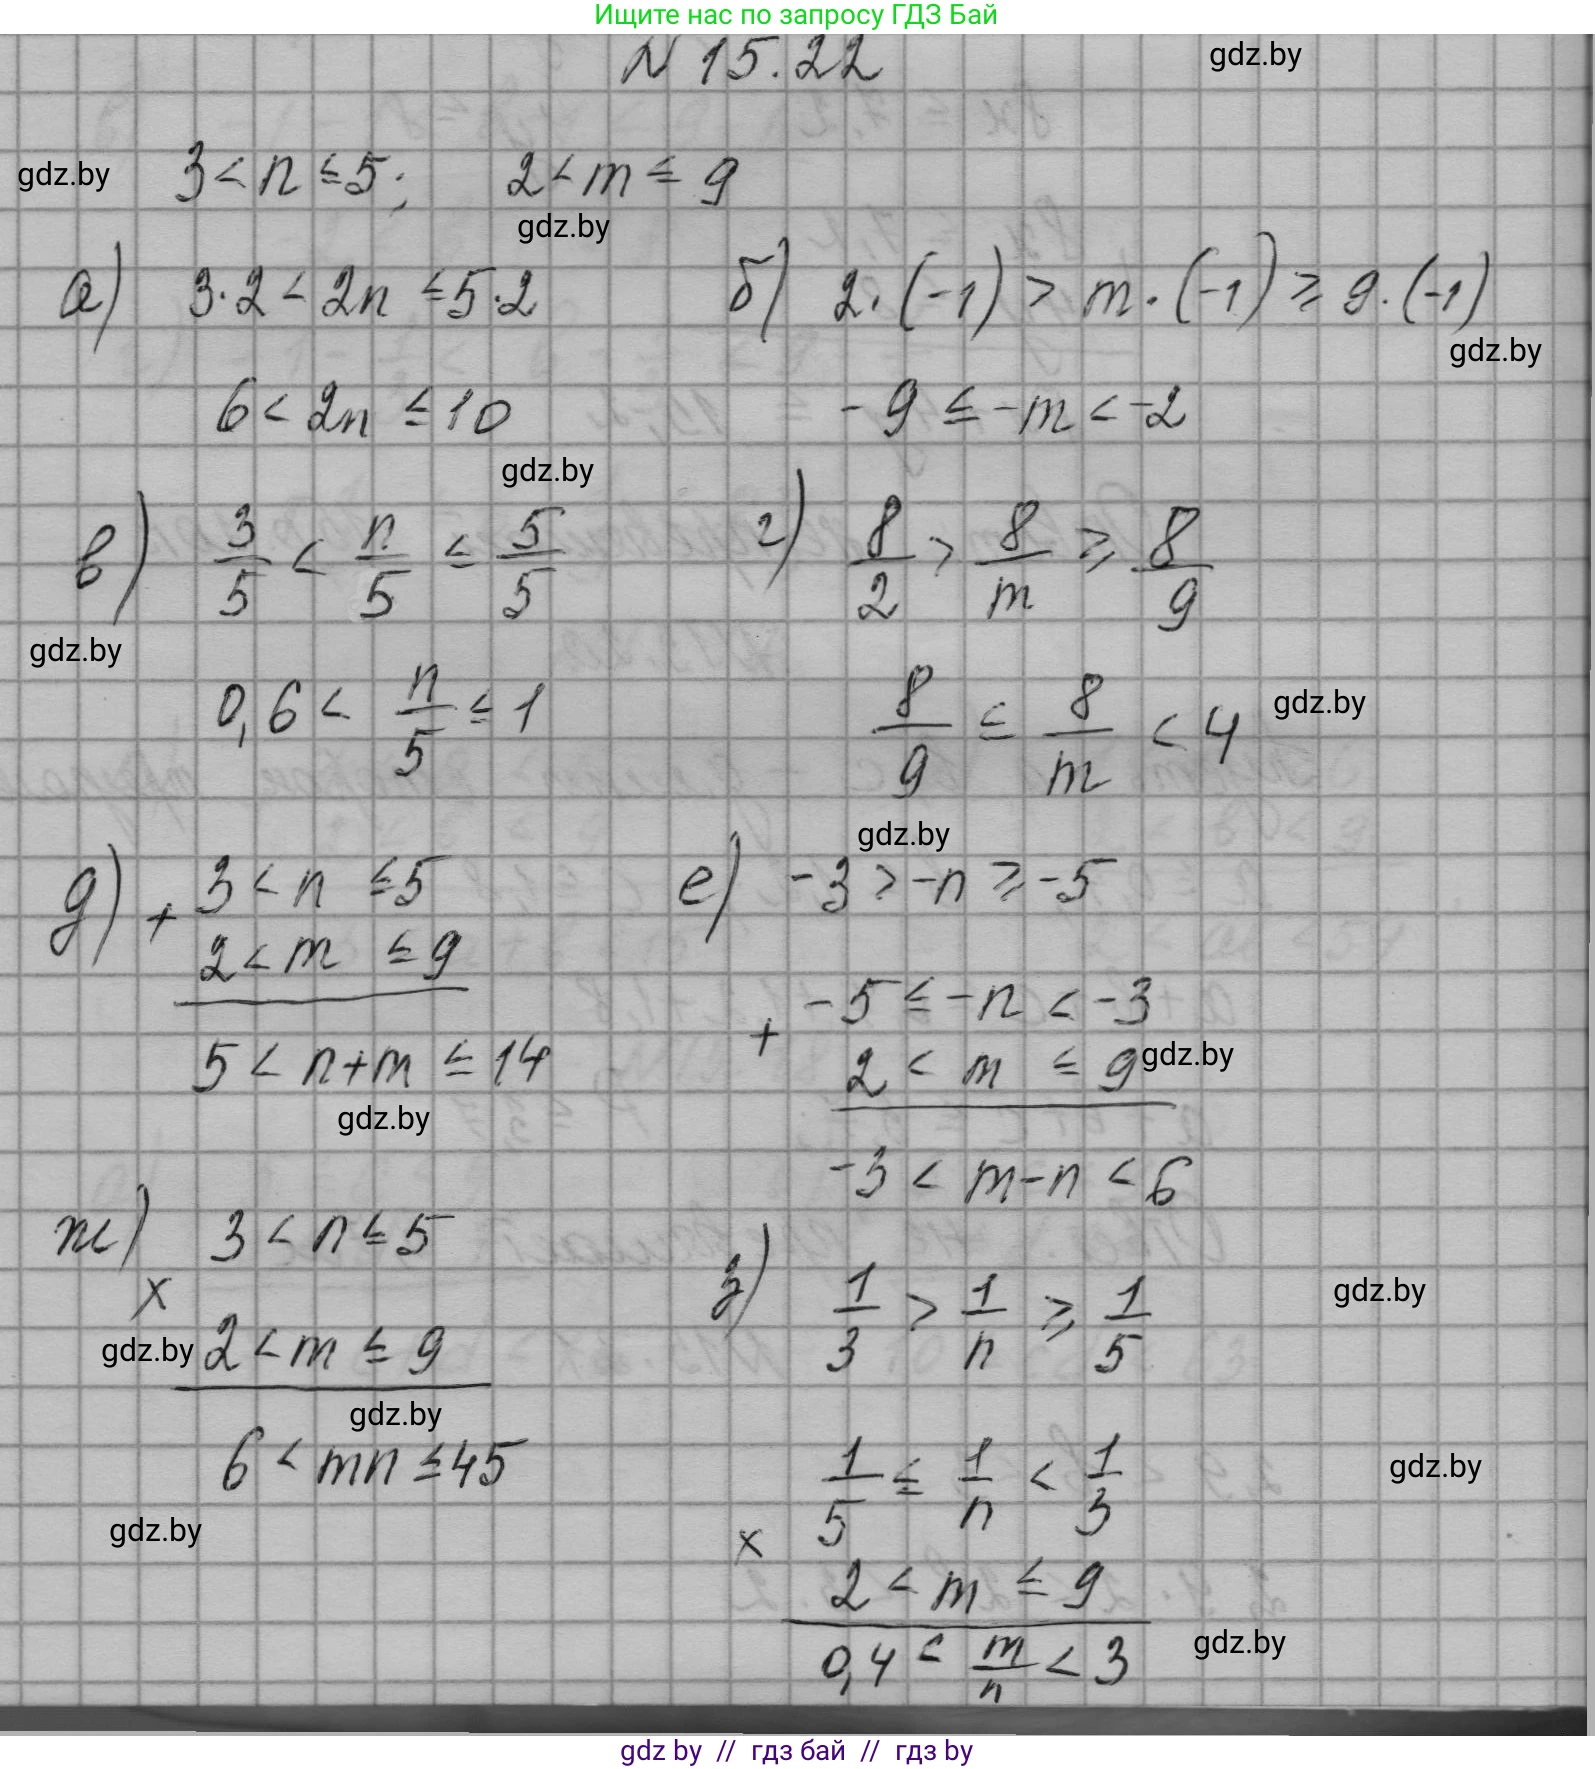 Ищите нас по запросу ГДЗ Бай
N 15.22
gdz.by
gdz.by
3 < n ≤ 5; 2 < m ≤ 9
gdz.by
а) 3·2 < 2n ≤ 5·2
6 < 2n ≤ 10
б) 2·(-1) > m·(-1) ≥ 9·(-1)
gdz.by
-9 ≤ -m < -2
gdz.by
в) 3/5 < n/5 ≤ 5/5
gdz.by
0,6 < n/5 ≤ 1
г) 8/2 > 8/m ≥ 8/9
8/9 ≤ 8/m < 4
gdz.by
gdz.by
д) + 3 < n ≤ 5
2 < m ≤ 9
5 < n+m ≤ 14
gdz.by
е) -3 > -n ≥ -5
+ -5 ≤ -n < -3
2 < m ≤ 9
gdz.by
-3 < m-n < 6
ж) 3 < n ≤ 5
x
gdz.by
2 < m ≤ 9
gdz.by
6 < mn ≤ 45
gdz.by
з) 1/3 > 1/n ≥ 1/5
gdz.by
1/5 ≤ 1/n < 1/3
gdz.by
x 2 < m ≤ 9
0,4 < m/n < 3
gdz.by
gdz by // гдз бай // гдз by